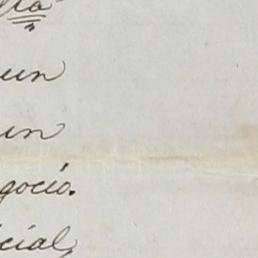 sta
un
un
gocio.
icial,